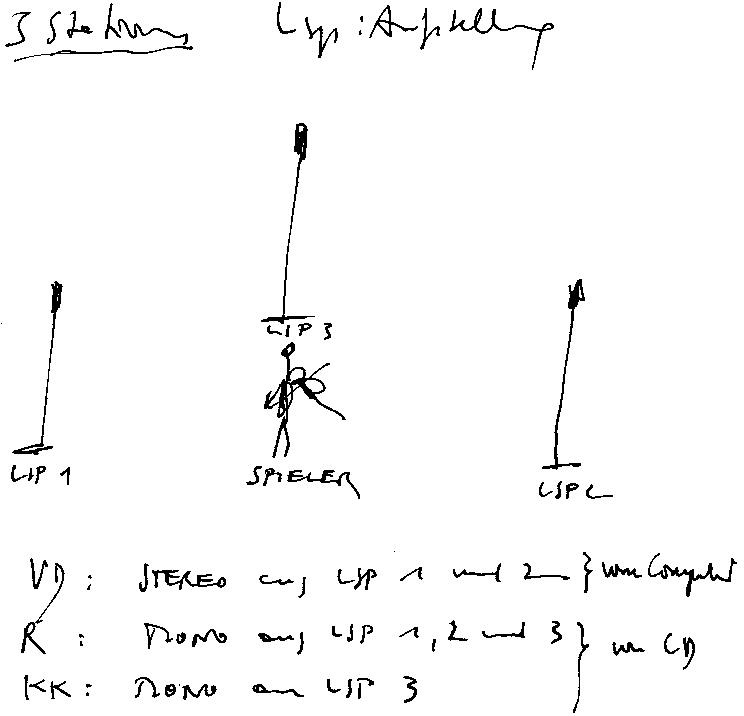 3 Stationen Lsp: Aufstellung
LSP 3
LSP 1
SPIELER
LSP 2
VD: STEREO aus LSP 1 und 2 } vom Computer
R: MONO aus LSP 1, 2 und 3 } von CD
KK: MONO aus LSP 3